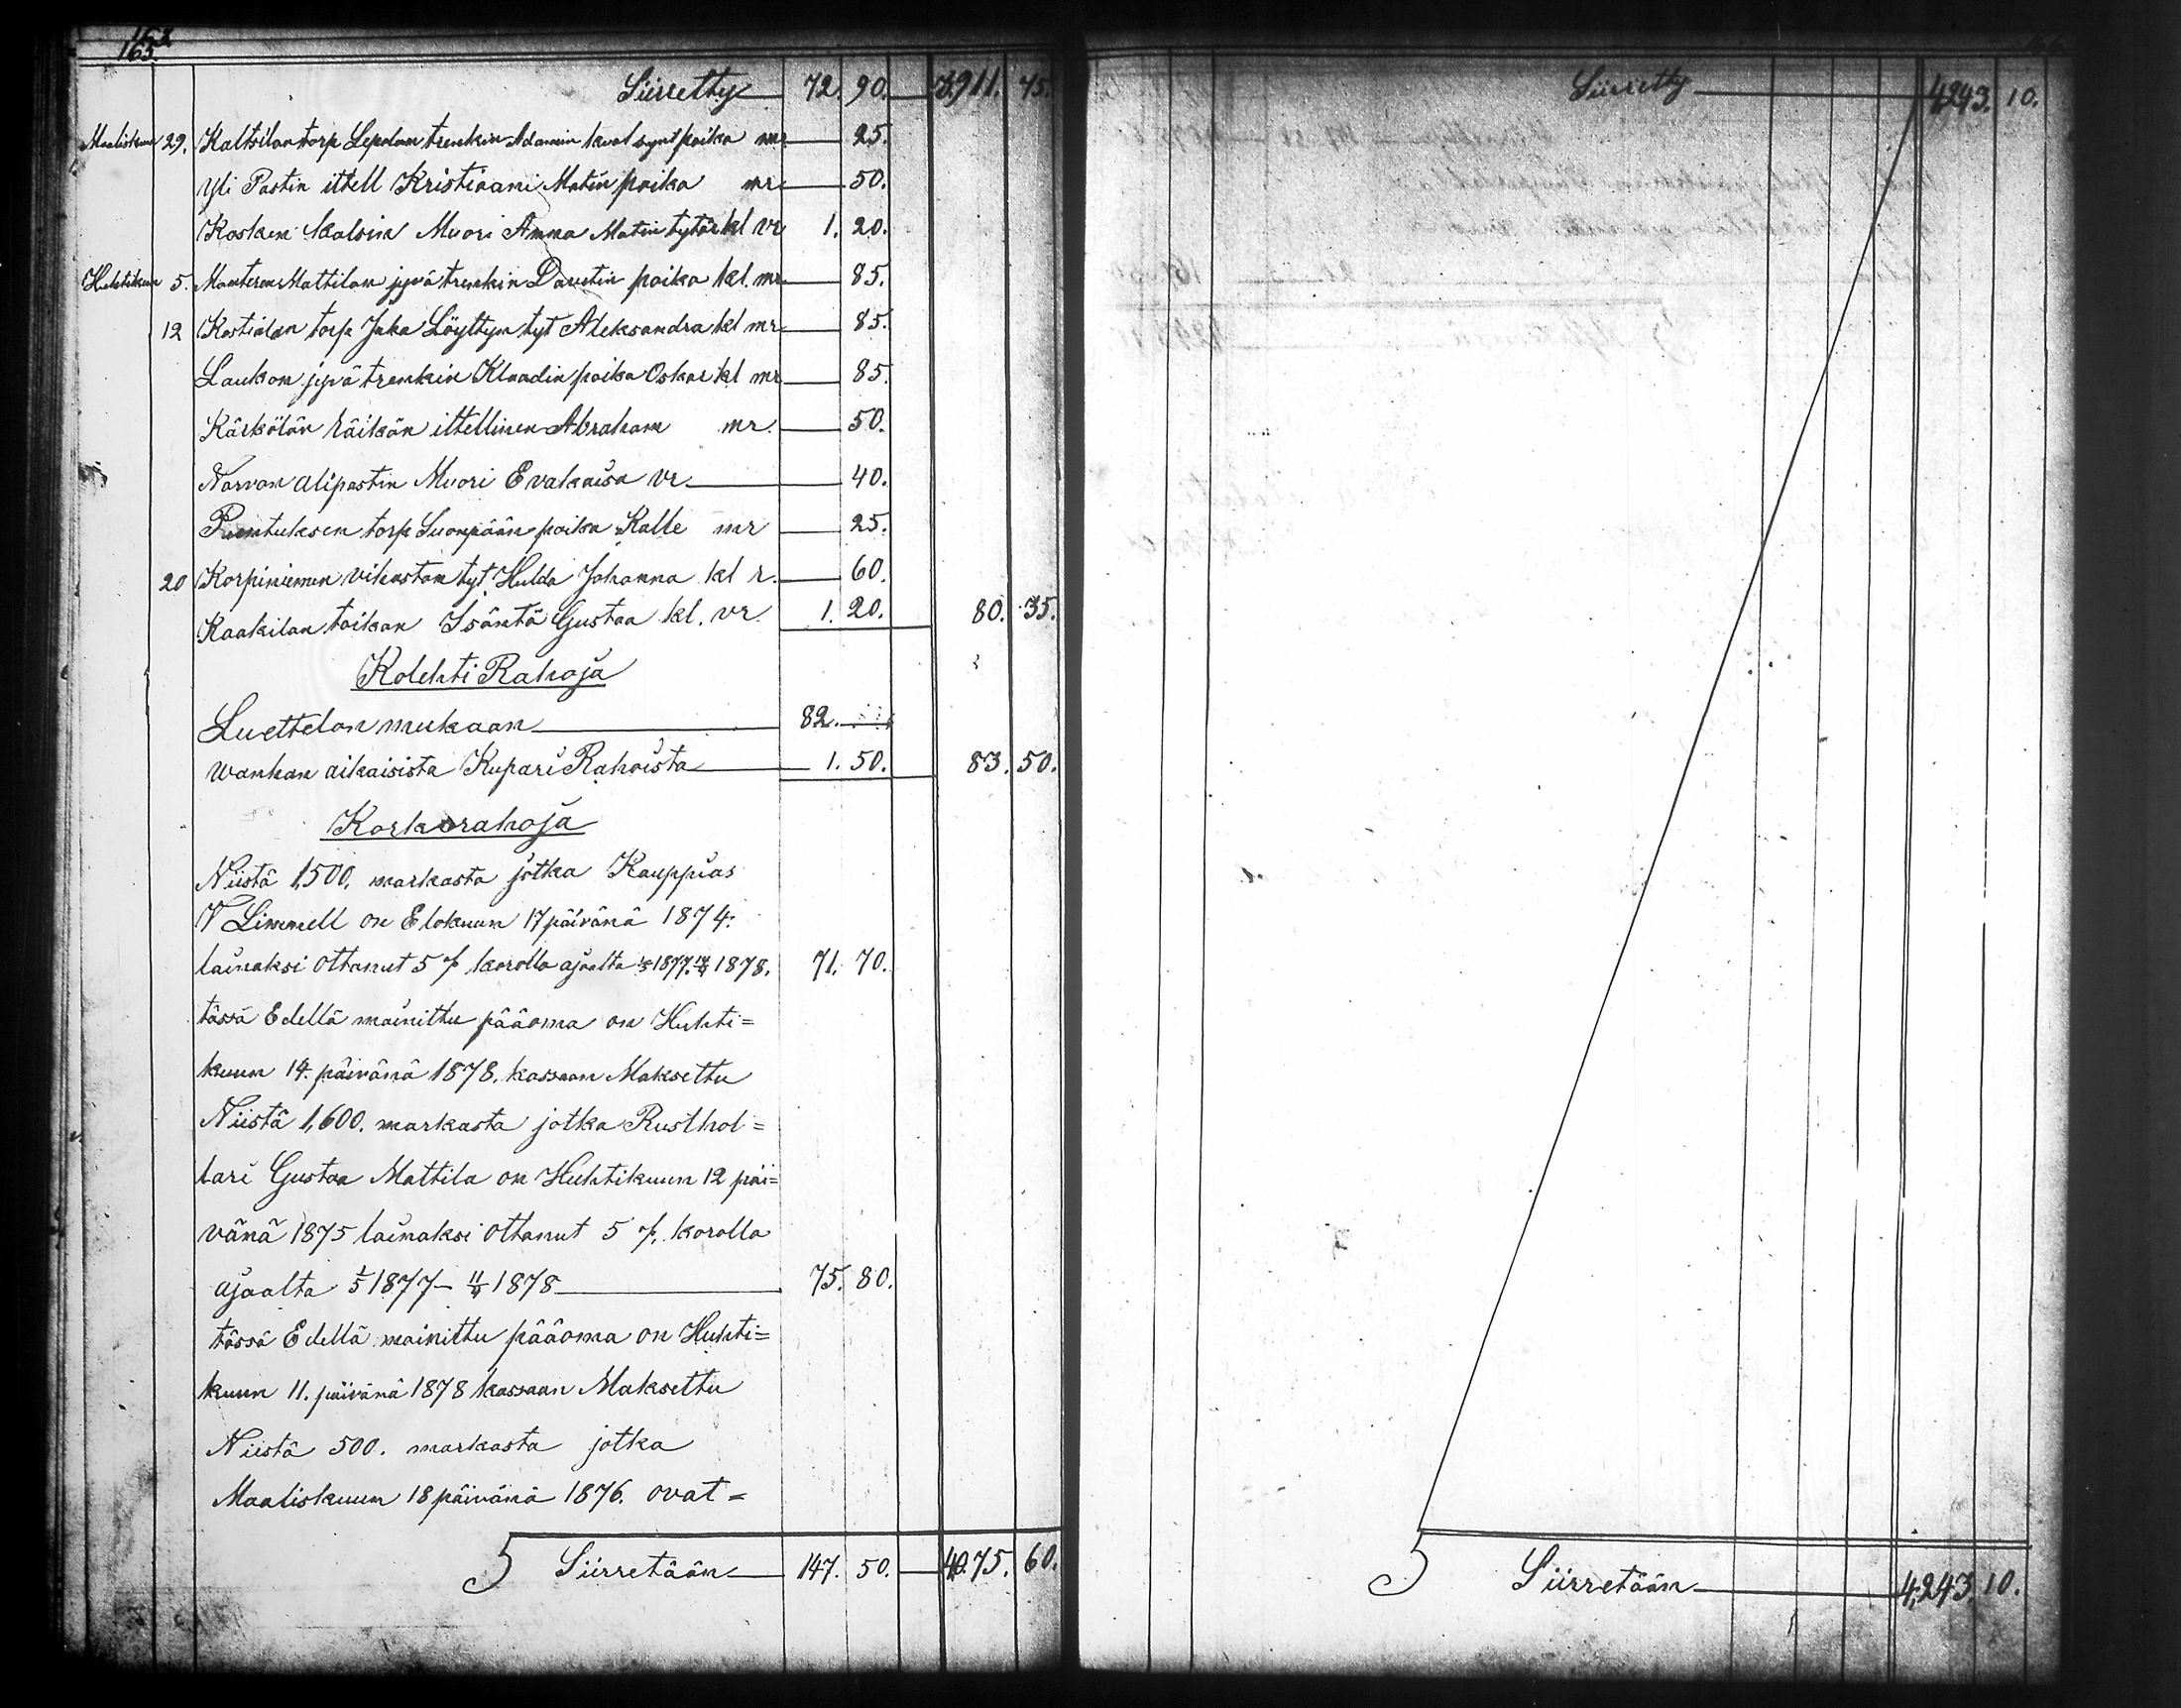 165.
Siirretty 72. 90. 3,911. 75.
Maaliskuun 29. Kaltsilan torp Lepolan trenkin Adamin kuol synt poika mr 25.
Yli Pastin ittell Kristiaani Matin poika mr 50.
Kosken Kalvin Muori Anna Matin tytär kl vr 1. 20.
Huhtikuun 5. Manteren Mattilan jyvä trenkin Davetin poika kl. mr 85.
12 Kostialan torp Juha Löyttyn tyt Aleksandra kl mr 85.
Laukon jyvä trenkin Klaudin poika Oskar kl mr 85.
Kärkölän Räikön ittellinen Abraham mr. 50.
Narvan alipastin Muori Evakaisa vr 40.
Puntuksen torp Suonpään poika Kalle mr 25.
20 Korpiniemen vihastan tyt. Hulda Johanna kl r. 60.
Kaakilan taikan Isäntä Gustaa kl. vr. 1. 20. 80. 35.
Kolehti Rahoja
Luettelon mukaan 82.
Wanhan aikaisista Kupari Rahoista 1. 50. 83. 50.
Korkorahoja
Niistä 1,500, markasta jotka Kauppias
V Limnell on Elokuun 17 päivänä 1874.
lainaksi ottanut 5 % korolla ajaalta 1877. 1878. 71. 70.
tässä Edellä mainittu pääoma on Huhti=
kuun 14. päivänä 1878. kassaan Maksettu
Niistä 1,600. markasta jotka Rusthol=
lari Gustaa Mattila on Huhtikuun 12 päi=
vänä 1875 lainaksi ottanut 5 %. korolla
ajaalta 1/5 1877 – 11/4 1878 75. 80.
tässä Edellä mainittu pääoma on Huhti=
kuun 11. päivänä 1878 kassaan Maksettu
Niistä 500. markasta jotka
Maaliskuun 18 päivänä 1876. ovat =
Siirretään 147. 50. 4,075. 60.
Siirretty 4,243. 10.
Siirretään 4,243. 10.